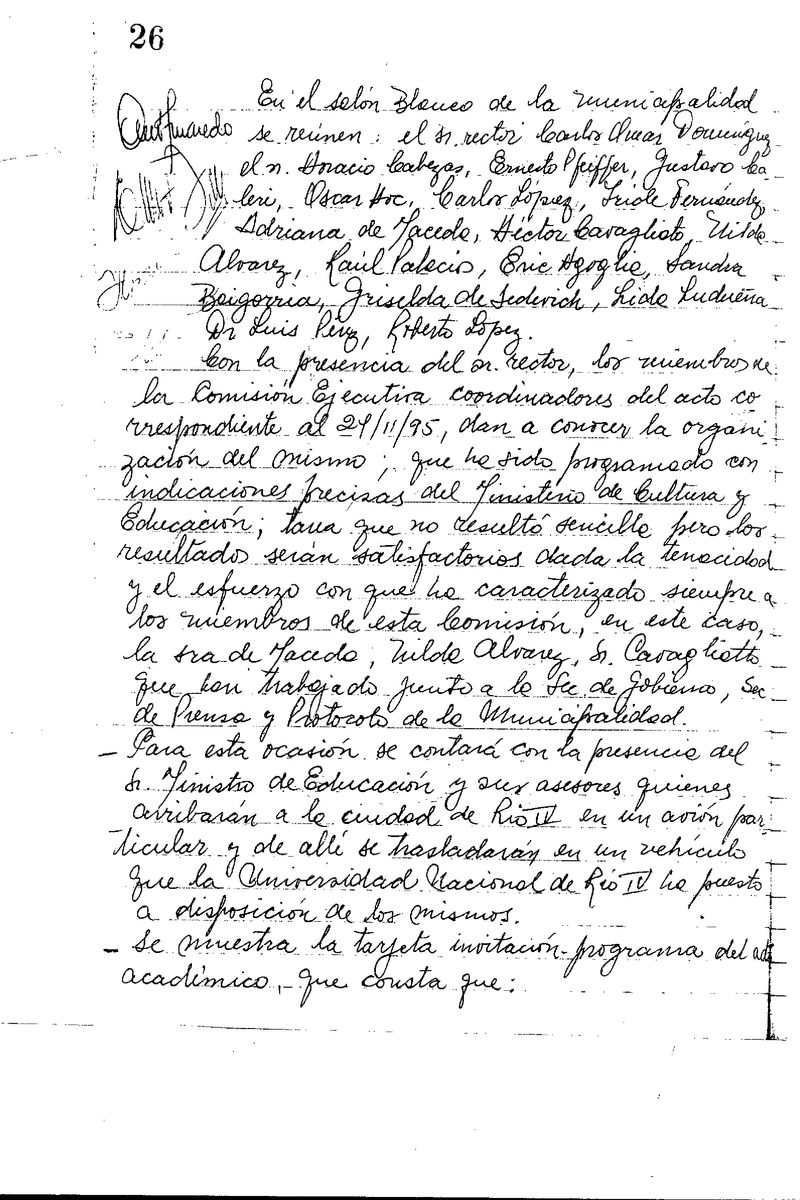 26
En el salón Blanco de la municipalidad
se reúnen: el sr. rector Carlos Omar Domínguez
el sr. Horacio Cabezas, Ernesto Pfeiffer, Gustavo Ca-
leri, Oscar Hoc, Carlos López, Iride Fernández,
Adriana de Macedo, Héctor Cavagliatto, Nilda
Alvarez, Raúl Palacio, Eric Agoglio, Sandra
Baigorria, Griselda de Sederich, Lida Ludueña
Dr Luis Pérez, Roberto López.
Con la presencia del sr. rector, los miembros de
la Comisión Ejecutiva coordinadores del acto co
rrespondiente al 24/11/95, dan a conocer la organi-
zación del mismo; que ha sido programado con
indicaciones precisas del Ministerio de Cultura y
Educación; tarea que no resultó sencilla pero los
resultados serán satisfactorios dada la tenacidad
y el esfuerzo con que ha caracterizado siempre a
los miembros de esta Comisión, en este caso,
la sra de Macedo, Nilda Alvarez, Sr. Cavagliatto
que han trabajado junto a la Sec de Gobierno, Sec
de Prensa y Protocolo de la Municipalidad.
– Para esta ocasión se contará con la presencia del
Sr. Ministro de Educación y sus asesores quienes
arribarán a la ciudad de Río IV en un avión par-
ticular y de allí se trasladarán en un vehículo
que la Universidad Nacional de Río IV ha puesto
a disposición de los mismos.
– Se muestra la tarjeta invitación-programa del acto
académico, que consta que: